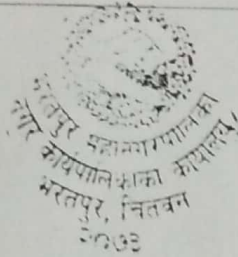 भरतपुर महानगरपालिका
नगर कार्यपालिकाको कार्यालय,
भरतपुर, चितवन
२०७३